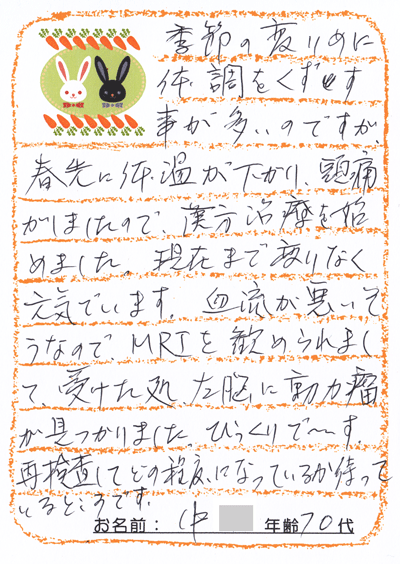 季節の変りめに
体調をくずす
事が多いのですが、
春先に体温が下がり、頭痛
がしましたので、漢方治療を始
めました。現在まで変りなく
元気でいます。血流が悪いそ
うなので、MRIを歓められまし
て、受けた処、左脳に動力瘤
が見つかりました。びっくりで〜す。
再検査してどの程度になっているか待って
いるところです。
お名前： 中 年齢70代